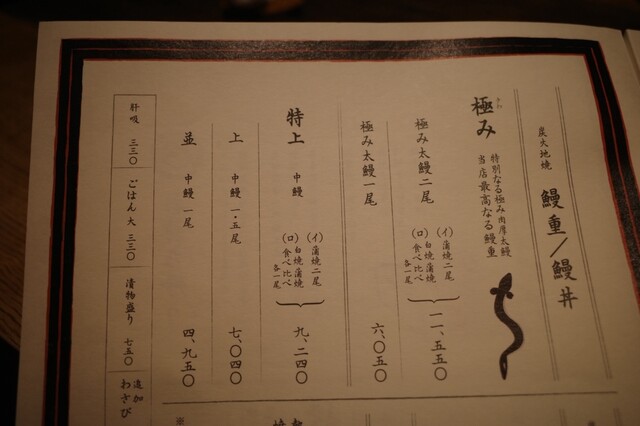 炭火地焼
鰻重／鰻丼
極み
きわ
特別なる極み肉厚太鰻
当店最高なる鰻重
極み太鰻二尾
(イ)蒲焼二尾
(ロ)白焼蒲焼
食べ比べ
各一尾
一一、五五〇
極み太鰻一尾
六、〇五〇
特上
中鰻
(イ)蒲焼二尾
(ロ)白焼蒲焼
食べ比べ
各一尾
九、二四〇
上
中鰻 一・五尾
七、〇四〇
並
中鰻 一尾
四、九五〇
肝吸 三三〇
ごはん 大 三三〇
漬物盛り 七五〇
追加
わさび
※